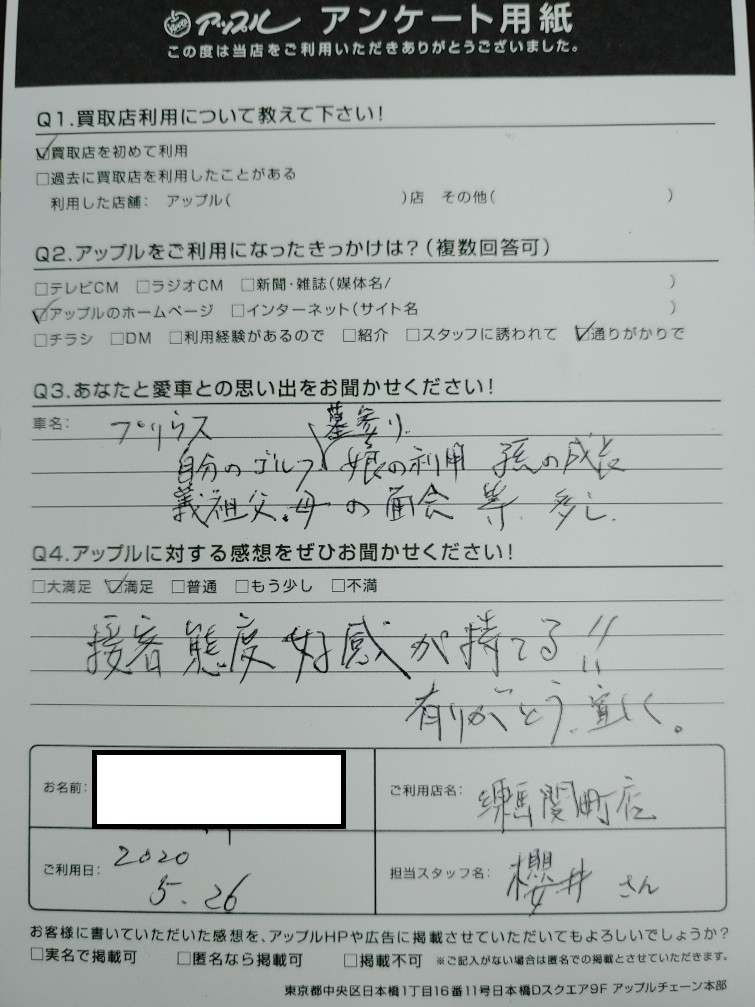 アップル アンケート用紙
この度は当店をご利用いただきありがとうございました。
Q1.買取店利用について教えて下さい!
☑買取店を初めて利用
□過去に買取店を利用したことがある
利用した店舗: アップル( )店 その他( )
Q2.アップルをご利用になったきっかけは?(複数回答可)
□テレビCM □ラジオCM □新聞・雑誌(媒体名/ )
☑アップルのホームページ □インターネット(サイト名 )
□チラシ □DM □利用経験があるので □紹介 □スタッフに誘われて ☑通りがかりで
Q3.あなたと愛車との思い出をお聞かせください!
車名: プリウス 墓参り.
自分のゴルフ 娘の利用 孫の成長
義祖父.母の面会 等.多し.
Q4.アップルに対する感想をぜひお聞かせください!
□大満足 ☑満足 □普通 □もう少し □不満
接客態度好感が持てる!!
有りがとう.宜しく。
お名前:
ご利用店名: 練馬関町店
ご利用日: 2020
5.26
担当スタッフ名: 櫻井 さん
お客様に書いていただいた感想を、アップルHPや広告に掲載させていただいてもよろしいでしょうか?
□実名で掲載可 □匿名なら掲載可 □掲載不可 ※ご記入がない場合は匿名での掲載とさせていただきます。
東京都中央区日本橋1丁目16番11号日本橋Dスクエア9F アップルチェーン本部